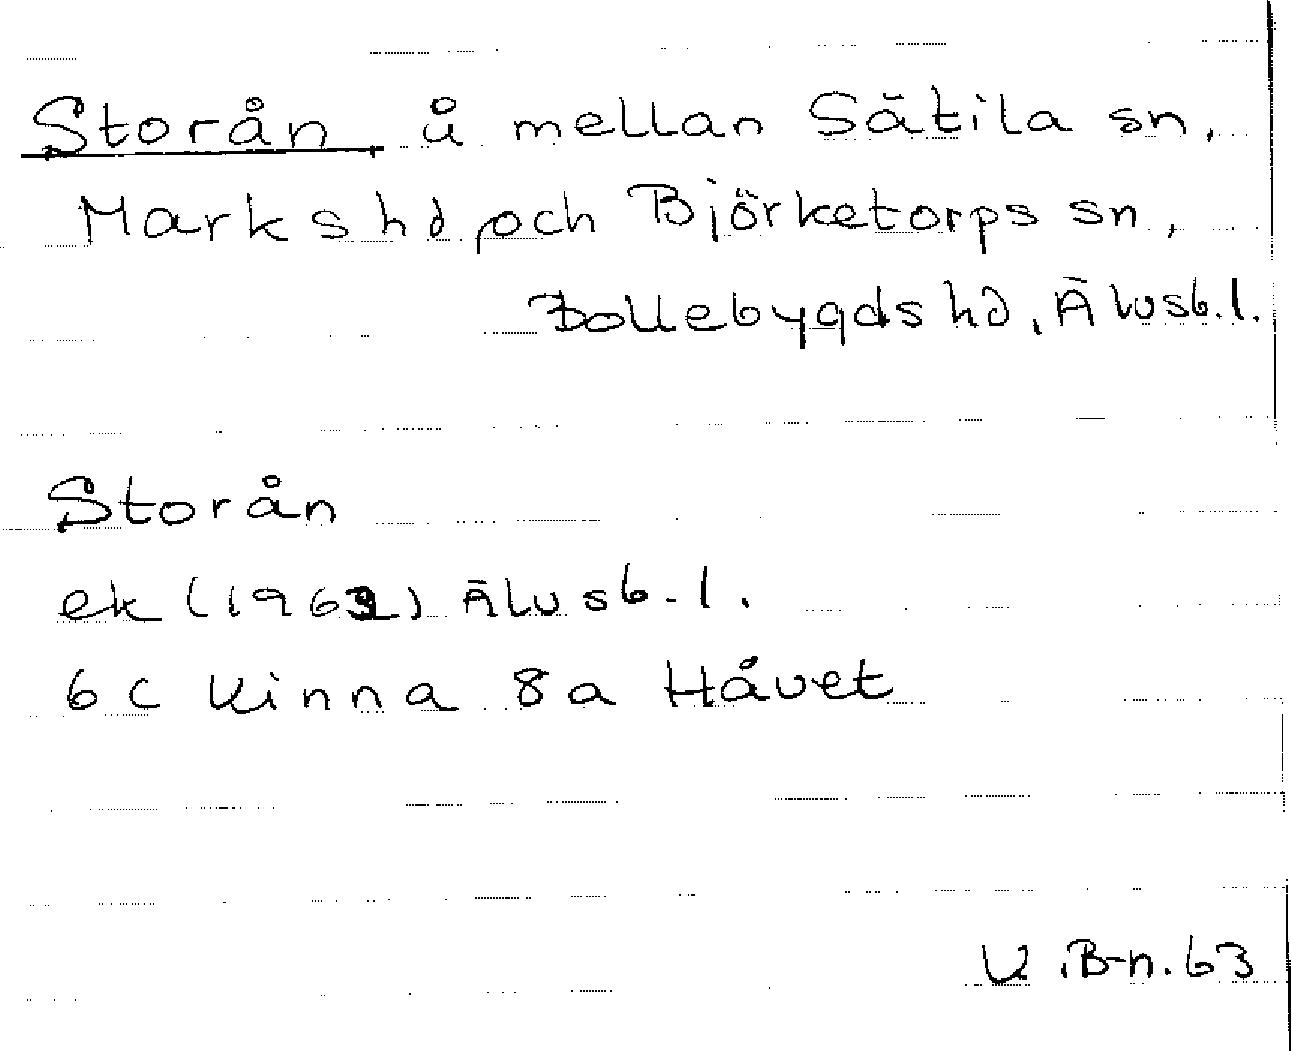 Storån å mellan Sätila sn,
Marks hd och Björketorps sn,
Bollebygds hd, Älvsb.l.
Storån
ek (1963) Älvsb.l.
6C Kinna 8a Håvet
V. B-n. 63